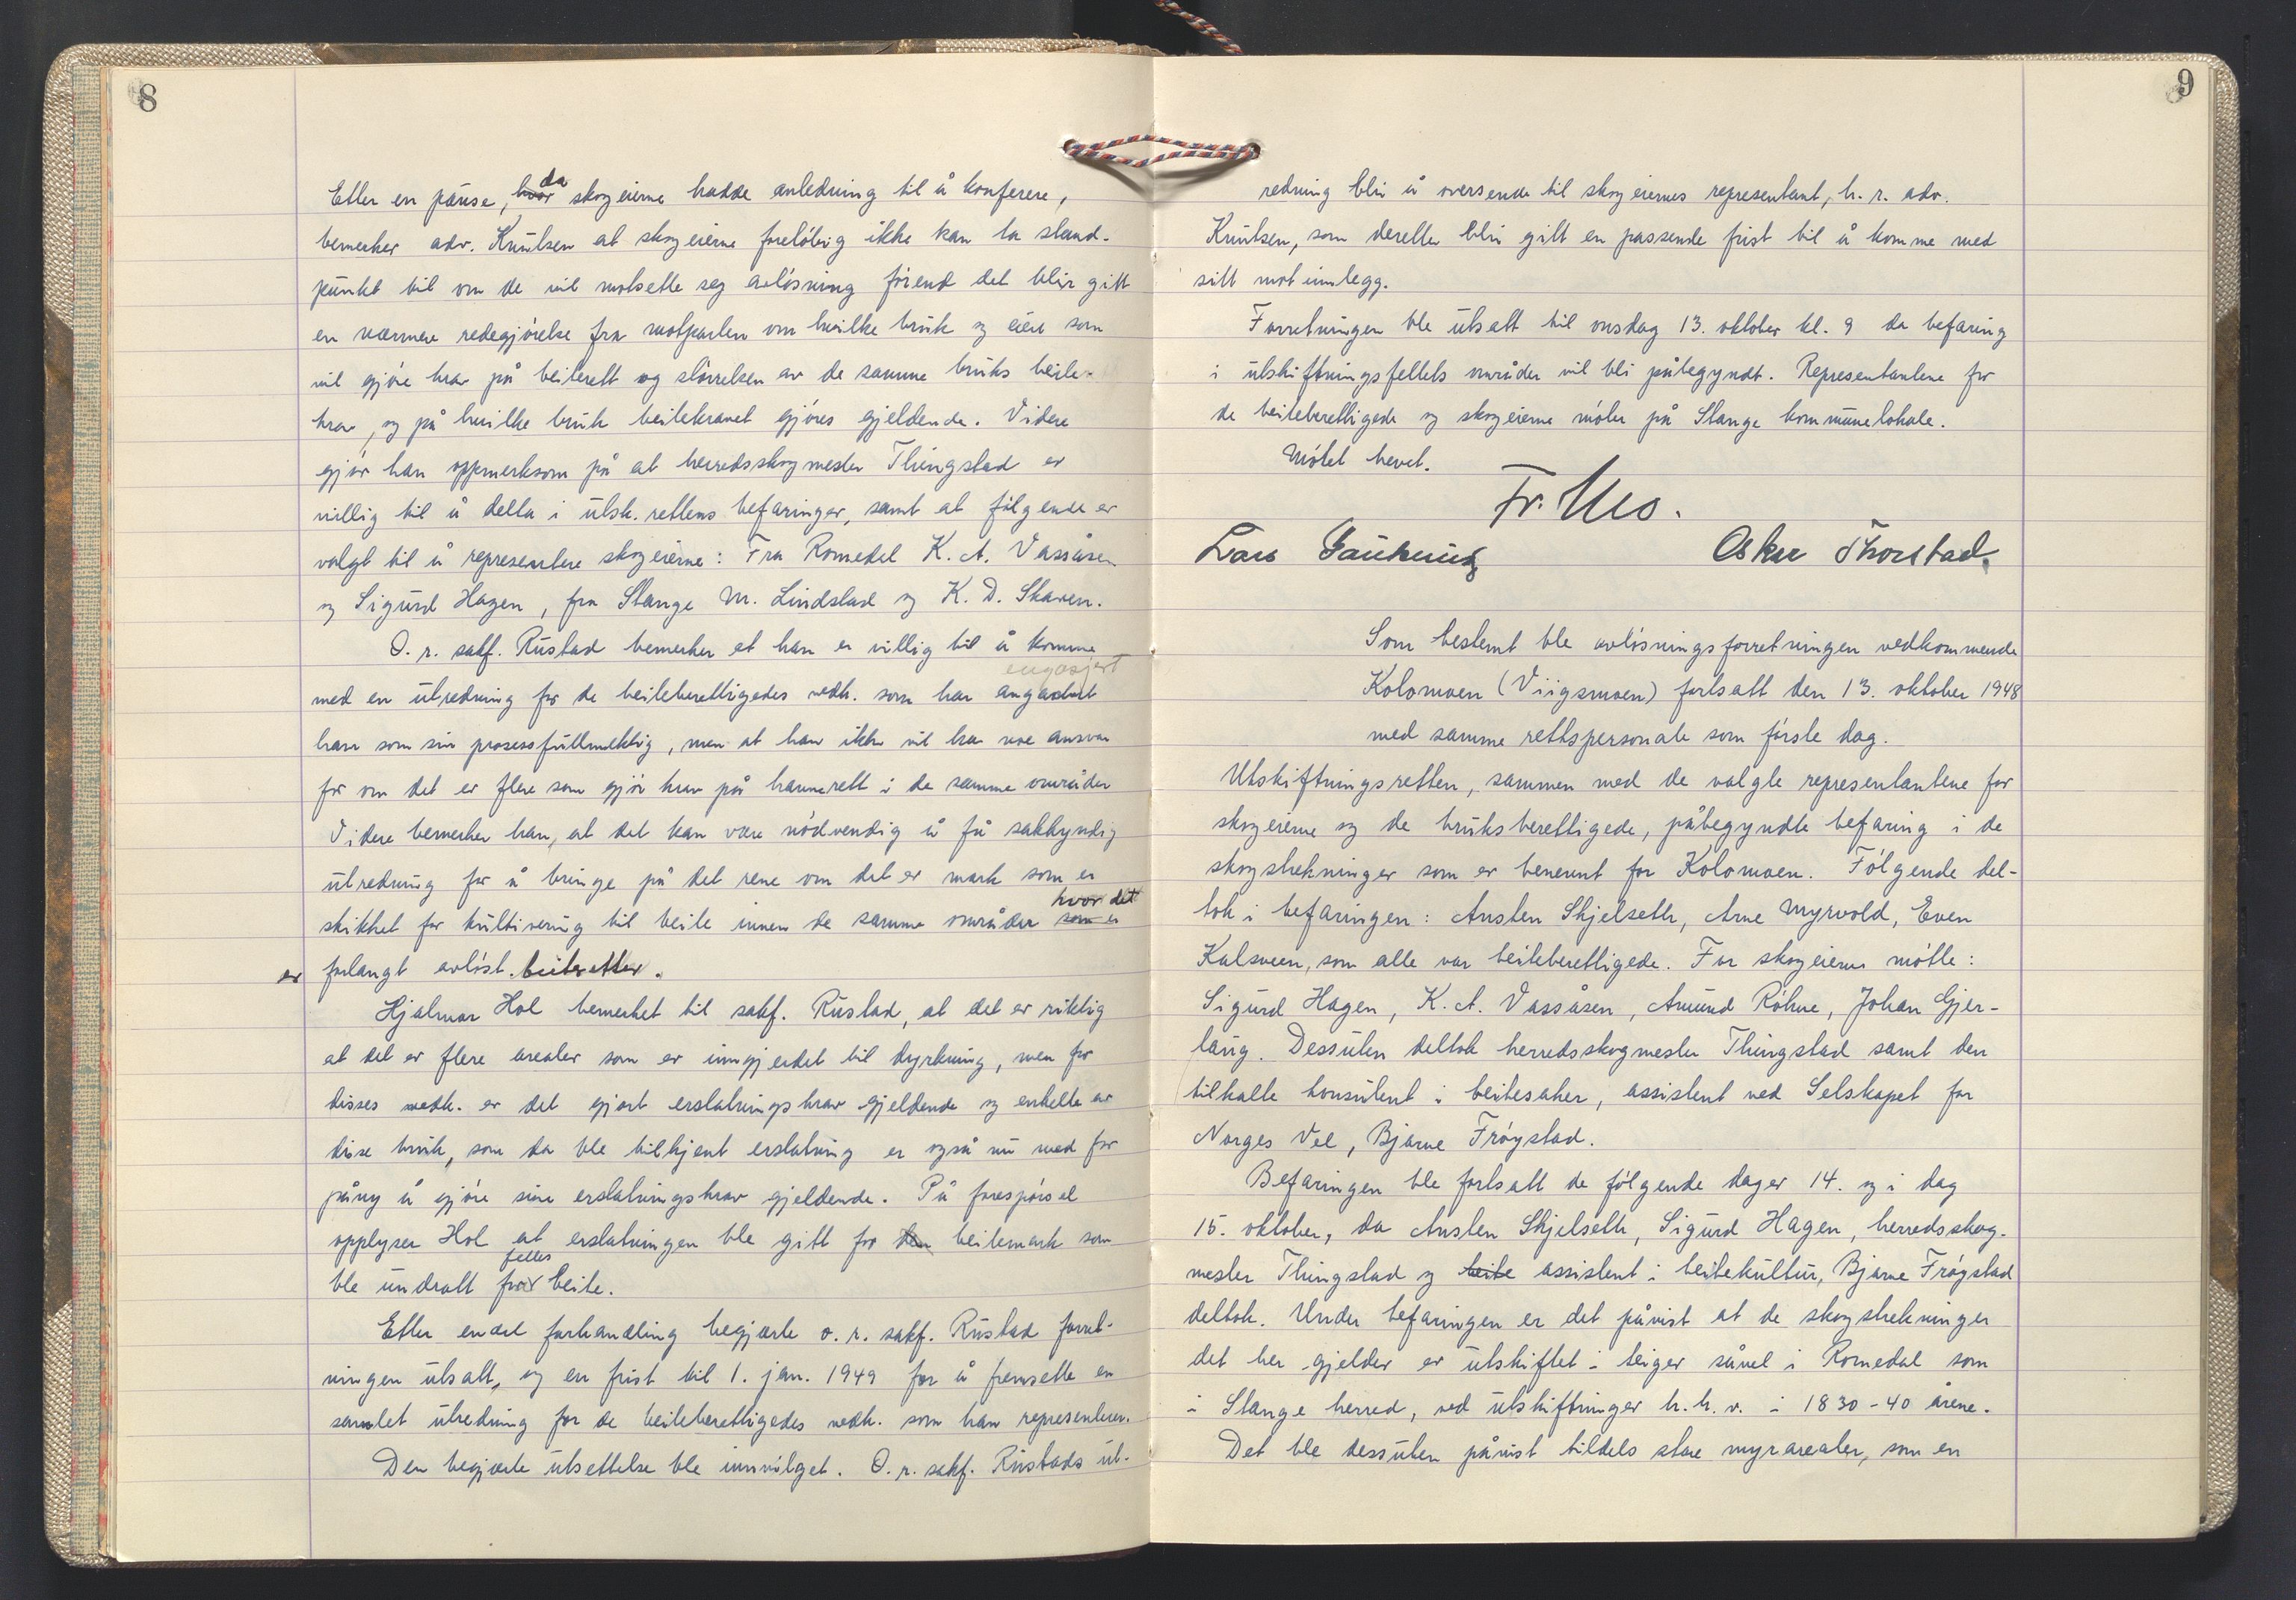 8
Etter en pause, hvor da skogeierne hadde anledning til å konferere,
bemerker adv. Knutsen at skogeierne foreløbig ikke kan ta stand-
punkt til om de vil motsette seg avløsning førend det blir gitt
en nærmere redegjørelse fra motparten om hvilke bruk og eiere som
vil gjøre krav på beiterett og størrelsen av de samme bruks beite-
krav, og på hvilke bruk beitekravet gjøres gjeldende. Videre
gjør han oppmerksom på at herredsskogmester Thingstad er
villig til å delta i utsk. rettens befaringer, samt at følgende er
valgt til å representere skogeierne: Fra Romedal K. A. Vassåsen
og Sigurd Hagen, fra Stange M. Lindstad og K. D. Skaven.
O. r. sakf. Rustad bemerker at han er villig til å komme
engasjert
med en utredning for de beiteberettigedes vedk. som har
ham som sin prosessfullmektig, men at han ikke vil ha noe ansvar
for om det er flere som gjør krav på havnerett i de samme områder
Videre bemerker han, at det kan være nødvendig å få sakkyndig
utredning for å bringe på det rene om det er mark som er
hvor det
skikket for kultivering til beite innen de samme områder som er
er forlangt avløst beiteretter.
Hjalmar Hol bemerket til sakf. Rustad, at det er riktig
at det er flere arealer som er inngjerdet til dyrkning, men for
disses vedk. er det gjort erstatningskrav gjeldende og enkelte av
disse bruk, som da ble tilkjent erstatning er også nu med for
påny å gjøre sine erstatningskrav gjeldende. På forespørsel
opplyser Hol at erstatningen ble gitt for den beitemark som
felles
ble undratt fra beite.
Etter endel forhandling begjærte o. r. sakf. Rustad forret-
ningen utsatt, og en frist til 1. jan. 1949 for å fremsette en
samlet utredning for de beiteberettigedes vedk. som han representerer.
Den begjærte utsettelse ble innvilget. O. r. sakf. Rustads ut-
9
redning blir å oversende til skogeiernes representant, h. r. adv.
Knutsen, som deretter blir gitt en passende frist til å komme med
sitt motinnlegg.
Forretningen ble utsatt til onsdag 13. oktober kl. 9 da befaring
i utskiftningsfeltets områder vil bli påbegyndt. Representantene for
de beiteberettigede og skogeierne møter på Stange kommunelokale.
Møtet hevet.
Fr. Mo.
Lars Oskar Thorstad.
Som bestemt ble avløsningsforretningen vedkommende
Kolomoen (Viigsmoen) fortsatt den 13. oktober 1948
med samme rettspersonale som første dag.
Utskiftningsretten, sammen med de valgte representantene for
skogeierne og de bruksberettigede, påbegyndte befaring i de
skogstrekninger som er benevnt for Kolomoen. Følgende del-
tok i befaringen: Austen Skjelseth, Arne Myrvold, Even
Kalsveen, som alle var beiteberettigede. For skogeierne møtte:
Sigurd Hagen, K. A. Vassåsen, Amund Røhne, Johan Gjer-
laug. Dessuten deltok herredsskogmester Thingstad samt den
tilkalte konsulent i beitesaker, assistent ved Selskapet for
Norges Vel, Bjarne Frøystad.
Befaringen ble fortsatt de følgende dager 14. og i dag
15. oktober, da Austen Skjelseth, Sigurd Hagen, herredsskog-
mester Thingstad og beite assistent i beitekultur, Bjarne Frøystad
deltok. Under befaringen er det påvist at de skogstrekninger
det her gjelder er utskiftet i teiger såvel i Romedal som
i Stange herred, ved utskiftninger h. h. v. i 1830-40 årene.
Det ble dessuten påvist tildels store myrarealer, som en